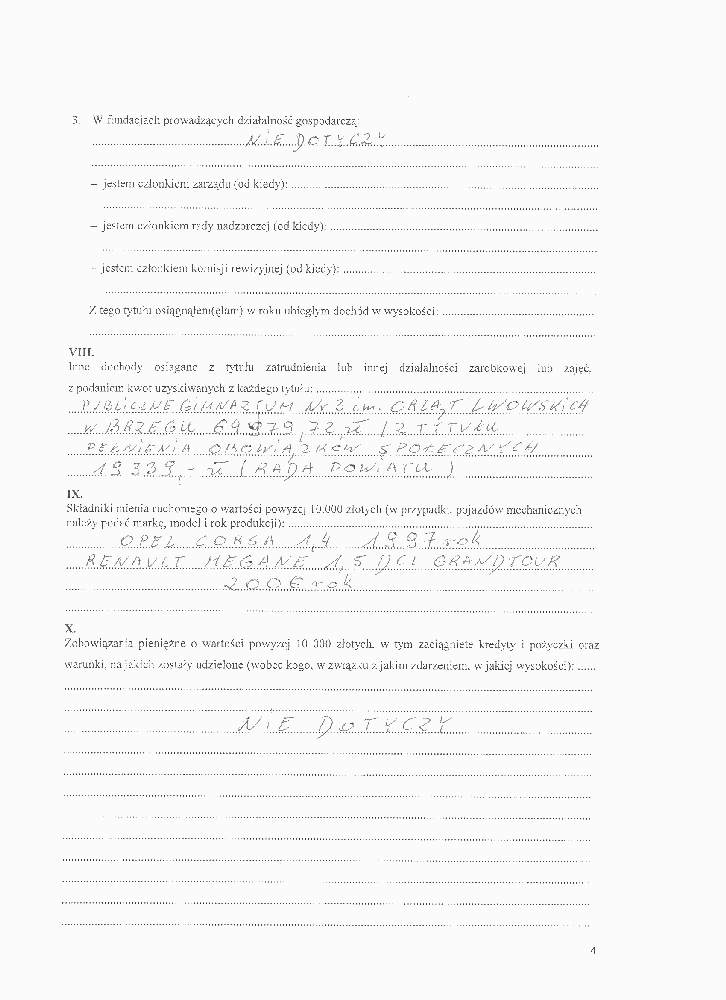 3. W fundacjach prowadzących działalność gospodarczą:
NIE DOTYCZY
– jestem członkiem zarządu (od kiedy):
– jestem członkiem rady nadzorczej (od kiedy):
– jestem członkiem komisji rewizyjnej (od kiedy):
Z tego tytułu osiągnąłem(ęłam) w roku ubiegłym dochód w wysokości:
VIII.
Inne dochody osiągane z tytułu zatrudnienia lub innej działalności zarobkowej lub zajęć,
z podaniem kwot uzyskiwanych z każdego tytułu:
PUBLICZNE GIMNAZJUM Nr 3 im. ORLĄT LWOWSKICH
W BRZEGU 69979,72 zł / Z TYTUŁU
PEŁNIENIA OBOWIĄZKÓW SPOŁECZNYCH
19 339,- zł (RADA POWIATU)
IX.
Składniki mienia ruchomego o wartości powyżej 10.000 złotych (w przypadku pojazdów mechanicznych
należy podać markę, model i rok produkcji):
OPEL CORSA 1,4 1997 rok
RENAULT MEGANE 1,5 DCI GRANDTOUR
2006 rok
X.
Zobowiązania pieniężne o wartości powyżej 10 000 złotych, w tym zaciągnięte kredyty i pożyczki oraz
warunki, na jakich zostały udzielone (wobec kogo, w związku z jakim zdarzeniem, w jakiej wysokości):
NIE DOTYCZY
4